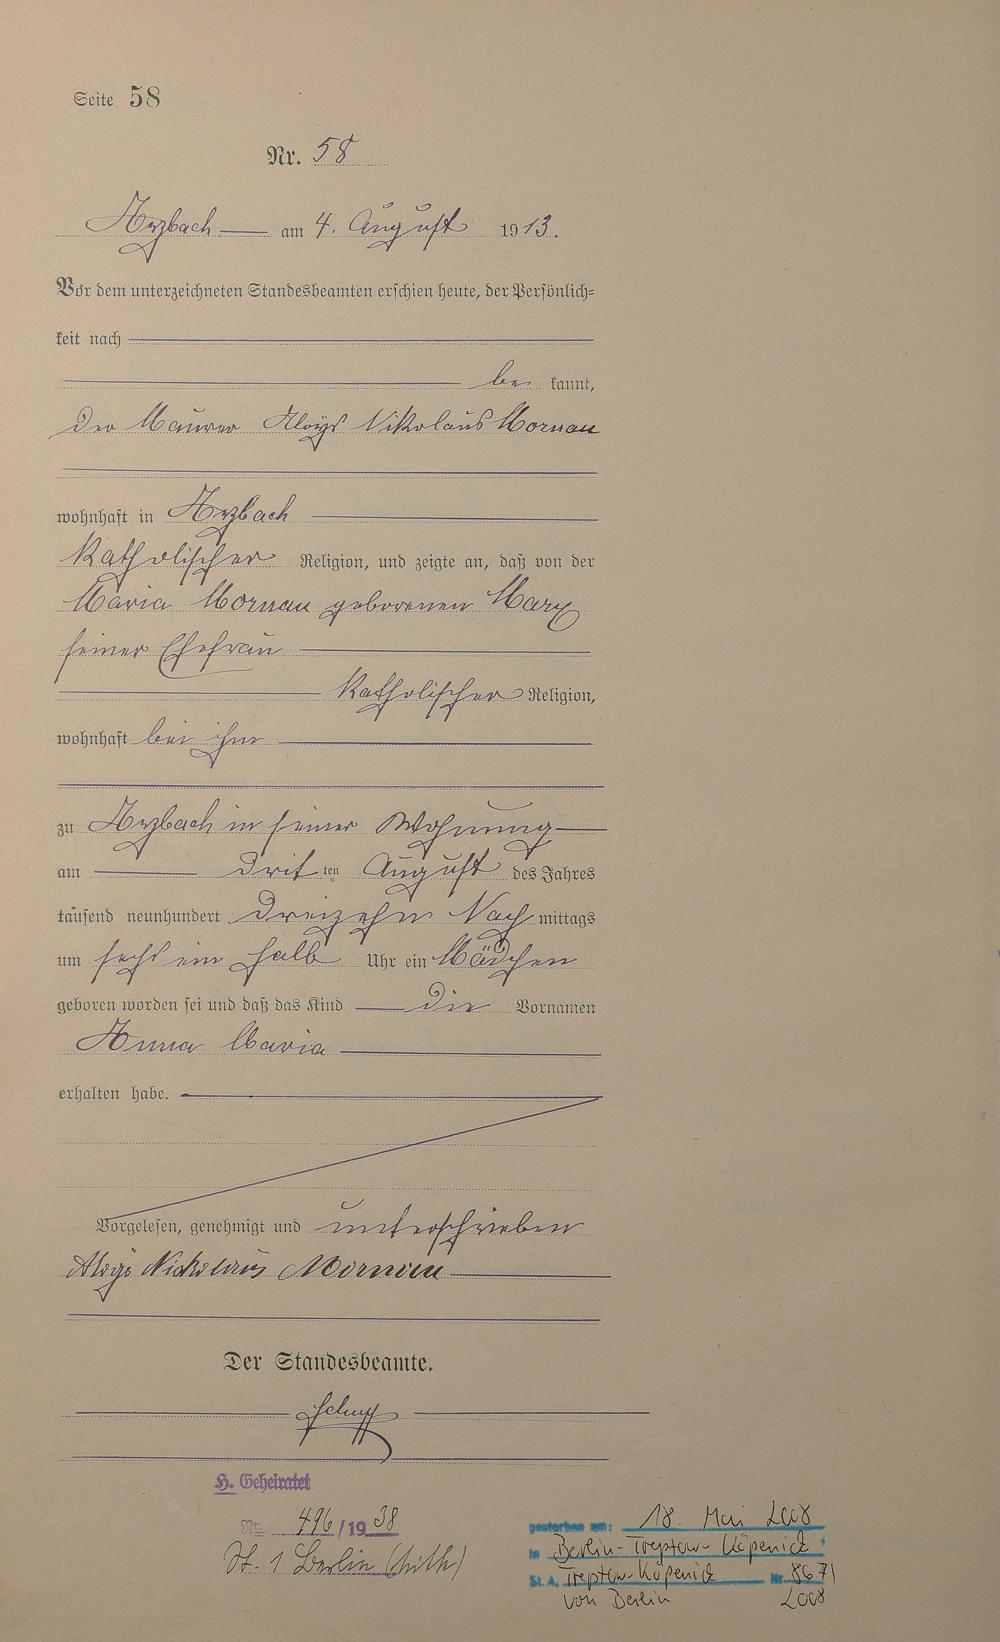 Seite 58
Nr. 58
Arzbach am 4. August 1913.
Vor dem unterzeichneten Standesbeamten erschien heute, der Persönlich=
keit nach
be kannt,
der Maurer Aloys Nikolaus Mornau
wohnhaft in Arzbach
katholischer Religion, und zeigte an, daß von der
Maria Mornau geborenen Marx
seiner Ehefrau
katholischer Religion,
wohnhaft bei ihm
zu Arzbach in seiner Wohnung
am drit ten August des Jahres
tausend neunhundert dreizehn Nach mittags
um sechs ein halb Uhr ein Mädchen
geboren worden sei und daß das Kind die Vornamen
Anna Maria
erhalten habe.
Vorgelesen, genehmigt und unterschrieben
Aloys Nickolaus Mornau
Der Standesbeamte.
H. Geheiratet
Nr. 496/1938
St. 1 Berlin
gestorben am: 18. Mai 2008
in Berlin-Treptow-Köpenick
St. A. Treptow-Köpenick Nr. 8671
von Berlin 2008